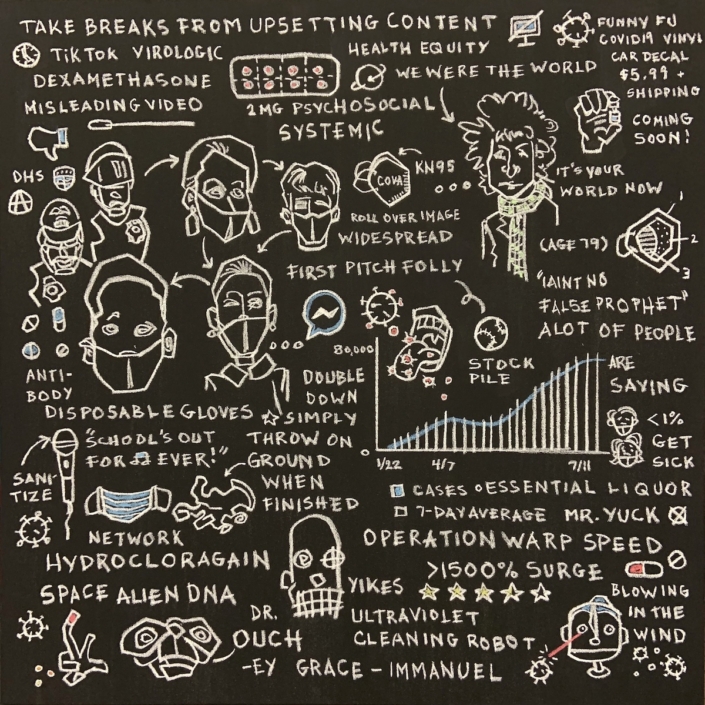 TAKE BREAKS FROM UPSETTING CONTENT
FUNNY FU
COVID19 VINYL
CAR DECAL
$5.99 +
SHIPPING
COMING
SOON!
TIKTOK VIROLOGIC
HEALTH EQUITY
DEXAMETHASONE
WE WERE THE WORLD
MISLEADING VIDEO
2MG PSYCHOSOCIAL
SYSTEMIC
DHS
A
KN95
COVA
IT'S YOUR
WORLD NOW
ROLL OVER IMAGE
WIDESPREAD
(AGE 79)
1
2
3
FIRST PITCH FOLLY
"IAINT NO
FALSE PROPHET"
ALOT OF PEOPLE
ARE
SAYING
80,000
STOCK
PILE
ANTI-
BODY
DOUBLE
DOWN
DISPOSABLE GLOVES
SIMPLY
THROW ON
GROUND
WHEN
FINISHED
<1%
GET
SICK
"SCHOOL'S OUT
FOR EVER!"
SANI-
TIZE
0
1/22 4/7 7/11
CASES ESSENTIAL LIQUOR
7-DAY AVERAGE MR. YUCK
NETWORK
HYDROCLORAGAIN
OPERATION WARP SPEED
>1500% SURGE
SPACE ALIEN DNA
YIKES
BLOWING
IN THE
WIND
DR.
OUCH
-EY GRACE - IMMANUEL
ULTRAVIOLET
CLEANING ROBOT